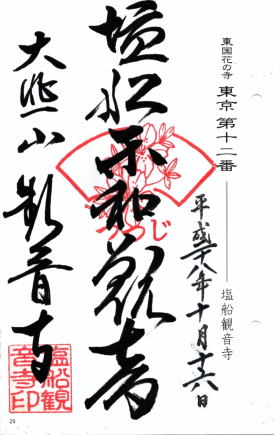 東国花の寺 東京 第十二番 塩船観音寺
平成十八年十月十六日
塩船平和観音
つつじ
大悲山 観音寺
塩船観
音寺印